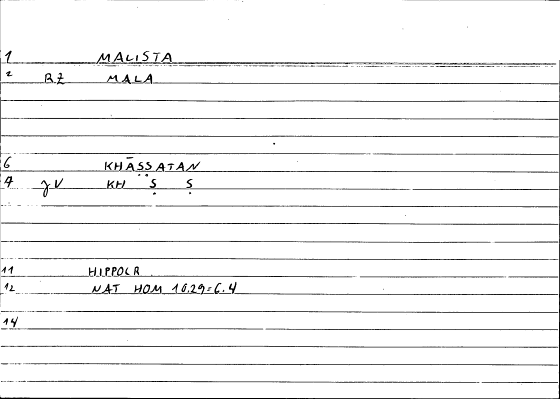 1 MALISTA
2 RŻ MALA
6 KHĀṢṢATAN
7 γV KH Ṣ Ṣ
11 HIPPOCR.
12 NAT HOM 10.29=6.4
14